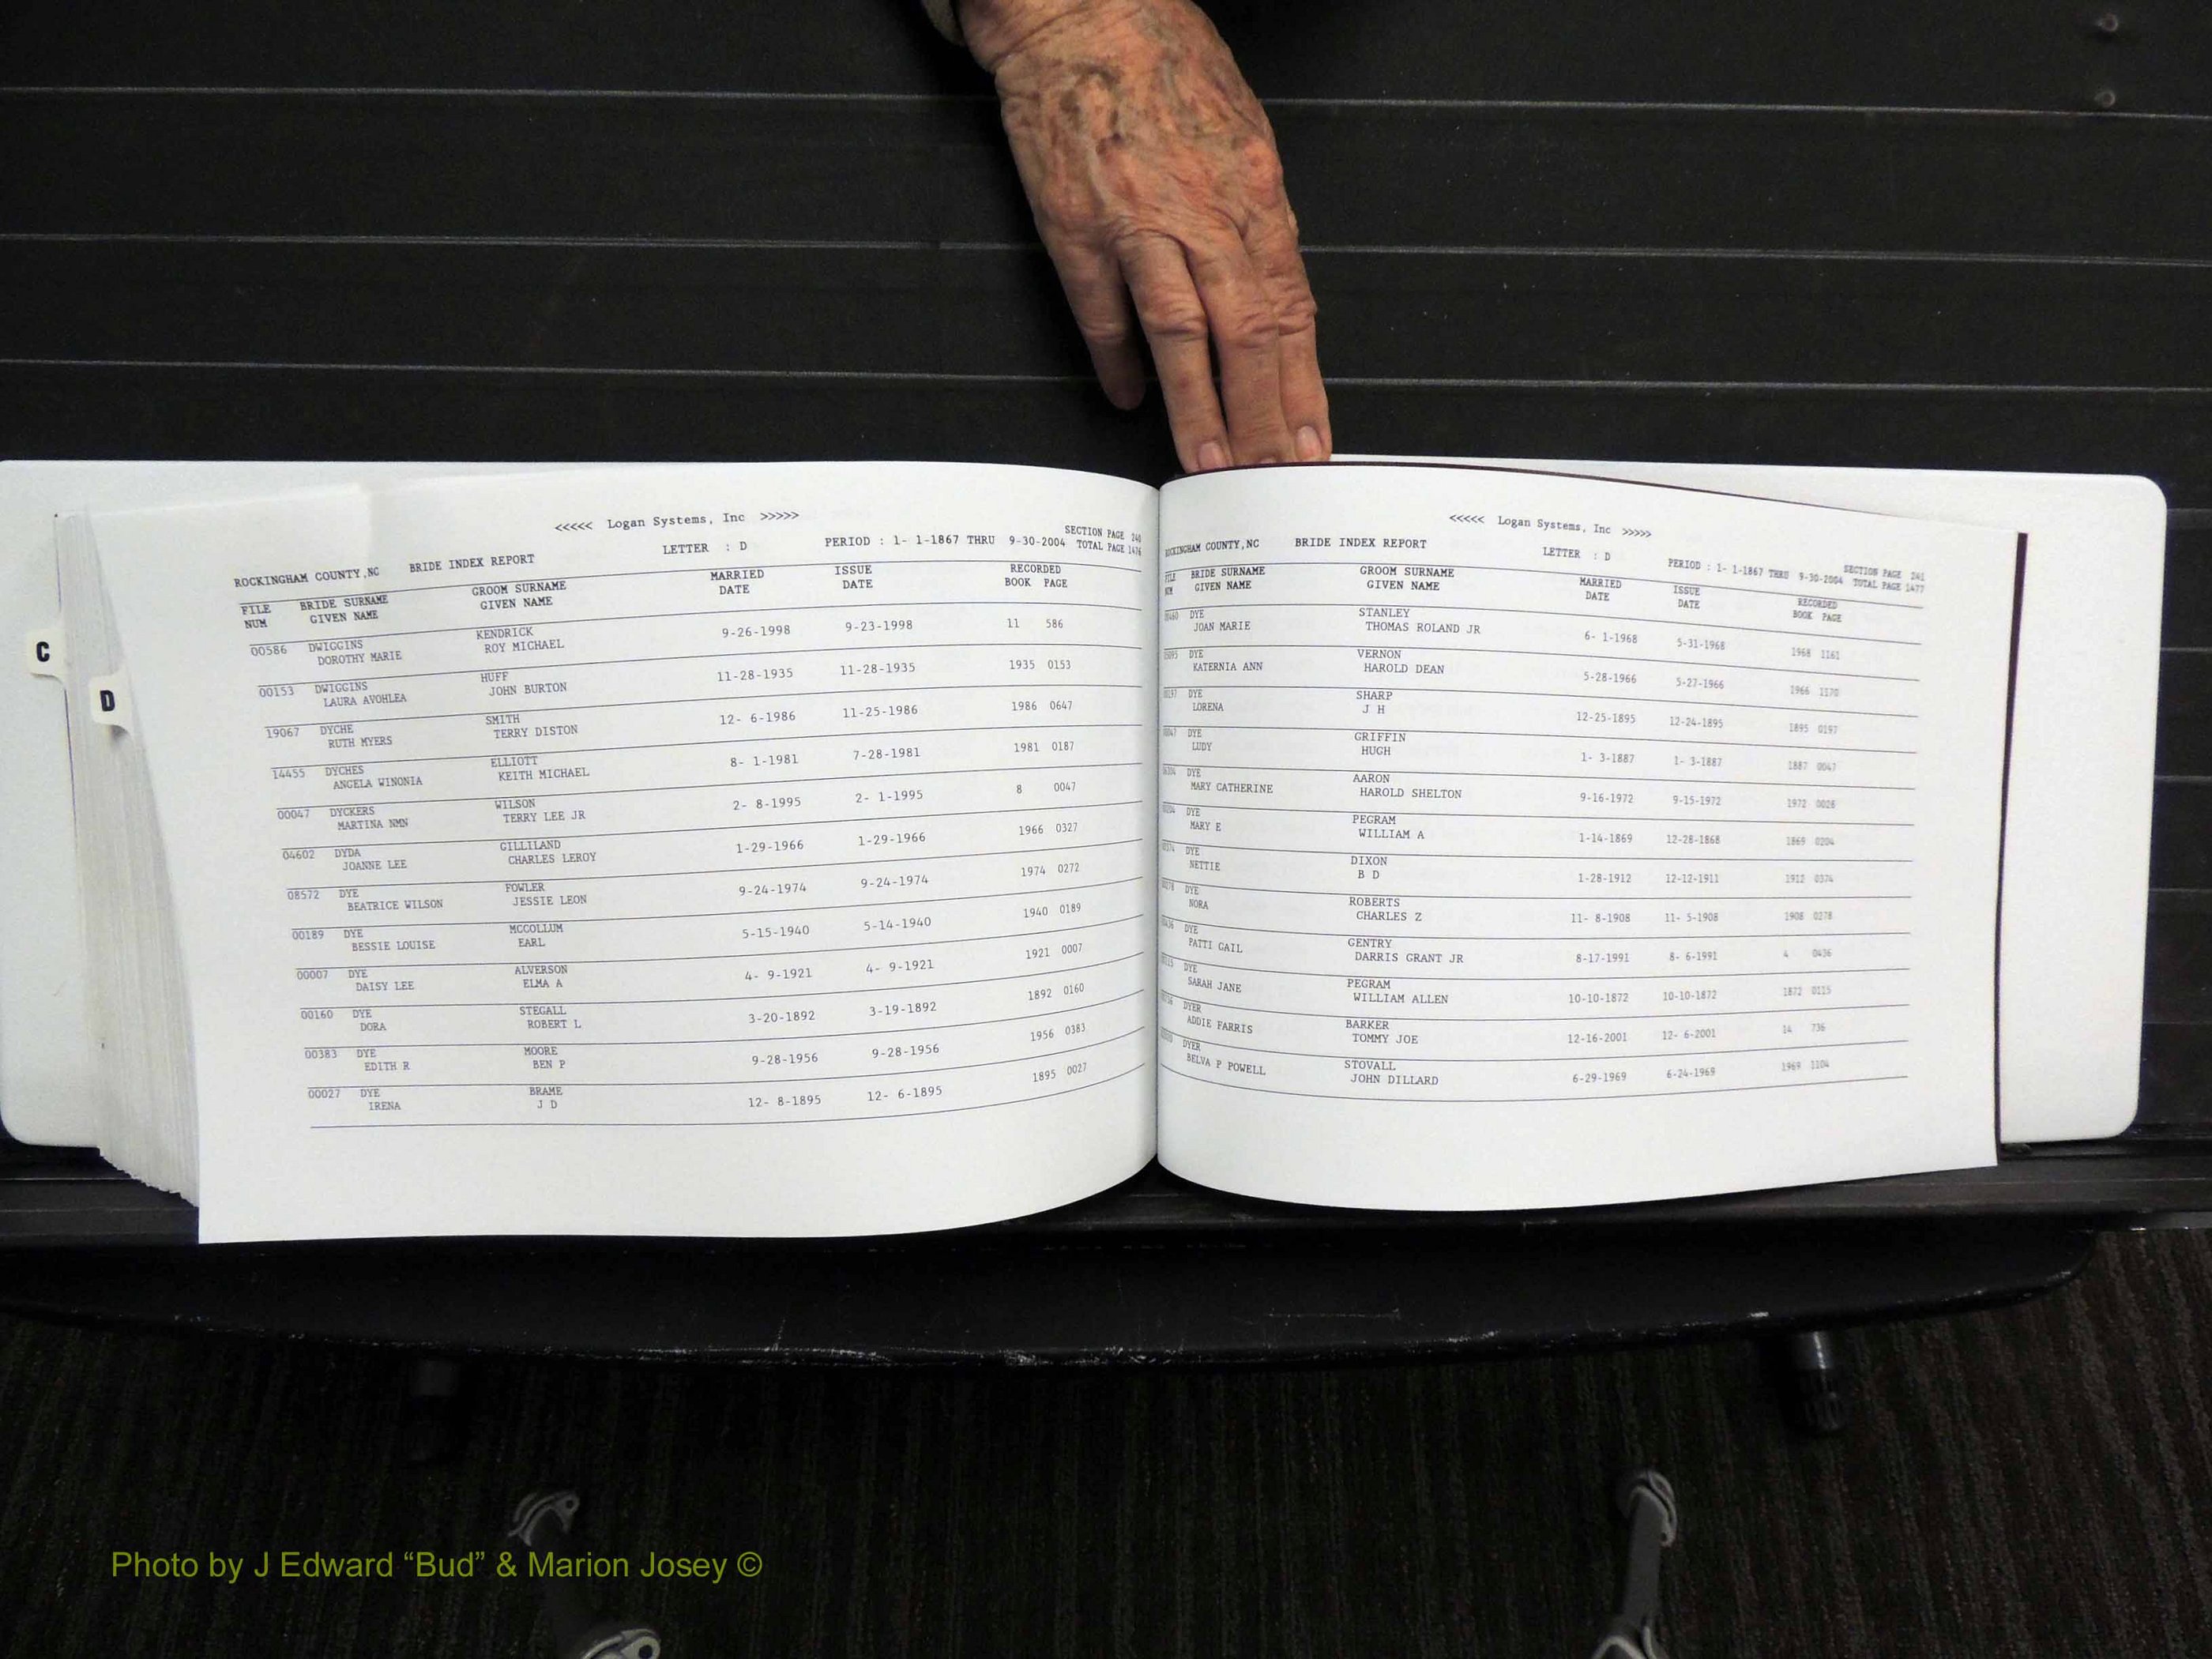 C
D
<<<<< Logan Systems, Inc >>>>>
SECTION PAGE 240
ROCKINGHAM COUNTY,NC BRIDE INDEX REPORT LETTER : D PERIOD : 1- 1-1867 THRU 9-30-2004 TOTAL PAGE 1476
FILE BRIDE SURNAME GROOM SURNAME MARRIED ISSUE RECORDED
NUM GIVEN NAME GIVEN NAME DATE DATE BOOK PAGE
00586 DWIGGINS KENDRICK 9-26-1998 9-23-1998 11 586
DOROTHY MARIE ROY MICHAEL
00153 DWIGGINS HUFF 11-28-1935 11-28-1935 1935 0153
LAURA AVOHLEA JOHN BURTON
19067 DYCHE SMITH 12- 6-1986 11-25-1986 1986 0647
RUTH MYERS TERRY DISTON
14455 DYCHES ELLIOTT 8- 1-1981 7-28-1981 1981 0187
ANGELA WINONIA KEITH MICHAEL
00047 DYCKERS WILSON 2- 8-1995 2- 1-1995 8 0047
MARTINA NMN TERRY LEE JR
04602 DYDA GILLILAND 1-29-1966 1-29-1966 1966 0327
JOANNE LEE CHARLES LEROY
08572 DYE FOWLER 9-24-1974 9-24-1974 1974 0272
BEATRICE WILSON JESSIE LEON
00189 DYE MCCOLLUM 5-15-1940 5-14-1940 1940 0189
BESSIE LOUISE EARL
00007 DYE ALVERSON 4- 9-1921 4- 9-1921 1921 0007
DAISY LEE ELMA A
00160 DYE STEGALL 3-20-1892 3-19-1892 1892 0160
DORA ROBERT L
00383 DYE MOORE 9-28-1956 9-28-1956 1956 0383
EDITH R BEN P
00027 DYE BRAME 12- 8-1895 12- 6-1895 1895 0027
IRENA J D
<<<<< Logan Systems, Inc >>>>>
SECTION PAGE 241
ROCKINGHAM COUNTY,NC BRIDE INDEX REPORT LETTER : D PERIOD : 1- 1-1867 THRU 9-30-2004 TOTAL PAGE 1477
FILE BRIDE SURNAME GROOM SURNAME MARRIED ISSUE RECORDED
NUM GIVEN NAME GIVEN NAME DATE DATE BOOK PAGE
DYE STANLEY 6- 1-1968 5-31-1968 1968 1161
JOAN MARIE THOMAS ROLAND JR
DYE VERNON 5-28-1966 5-27-1966 1966 1170
KATERNIA ANN HAROLD DEAN
DYE SHARP 12-25-1895 12-24-1895 1895 0197
LORENA J H
DYE GRIFFIN 1- 3-1887 1- 3-1887 1887 0047
LUDY HUGH
DYE AARON 9-16-1972 9-15-1972 1972 0026
MARY CATHERINE HAROLD SHELTON
DYE PEGRAM 1-14-1869 12-28-1868 1869 0204
MARY E WILLIAM A
DYE DIXON 1-28-1912 12-12-1911 1912 0374
NETTIE B D
DYE ROBERTS 11- 8-1908 11- 5-1908 1908 0278
NORA CHARLES Z
DYE GENTRY 8-17-1991 8- 6-1991 4 0436
PATTI GAIL DARRIS GRANT JR
DYE PEGRAM 10-10-1872 10-10-1872 1872 0115
SARAH JANE WILLIAM ALLEN
DYER BARKER 12-16-2001 12- 6-2001 14 736
ADDIE FARRIS TOMMY JOE
DYER STOVALL 6-29-1969 6-24-1969 1969 1104
BELVA P POWELL JOHN DILLARD
Photo by J Edward “Bud” & Marion Josey ©